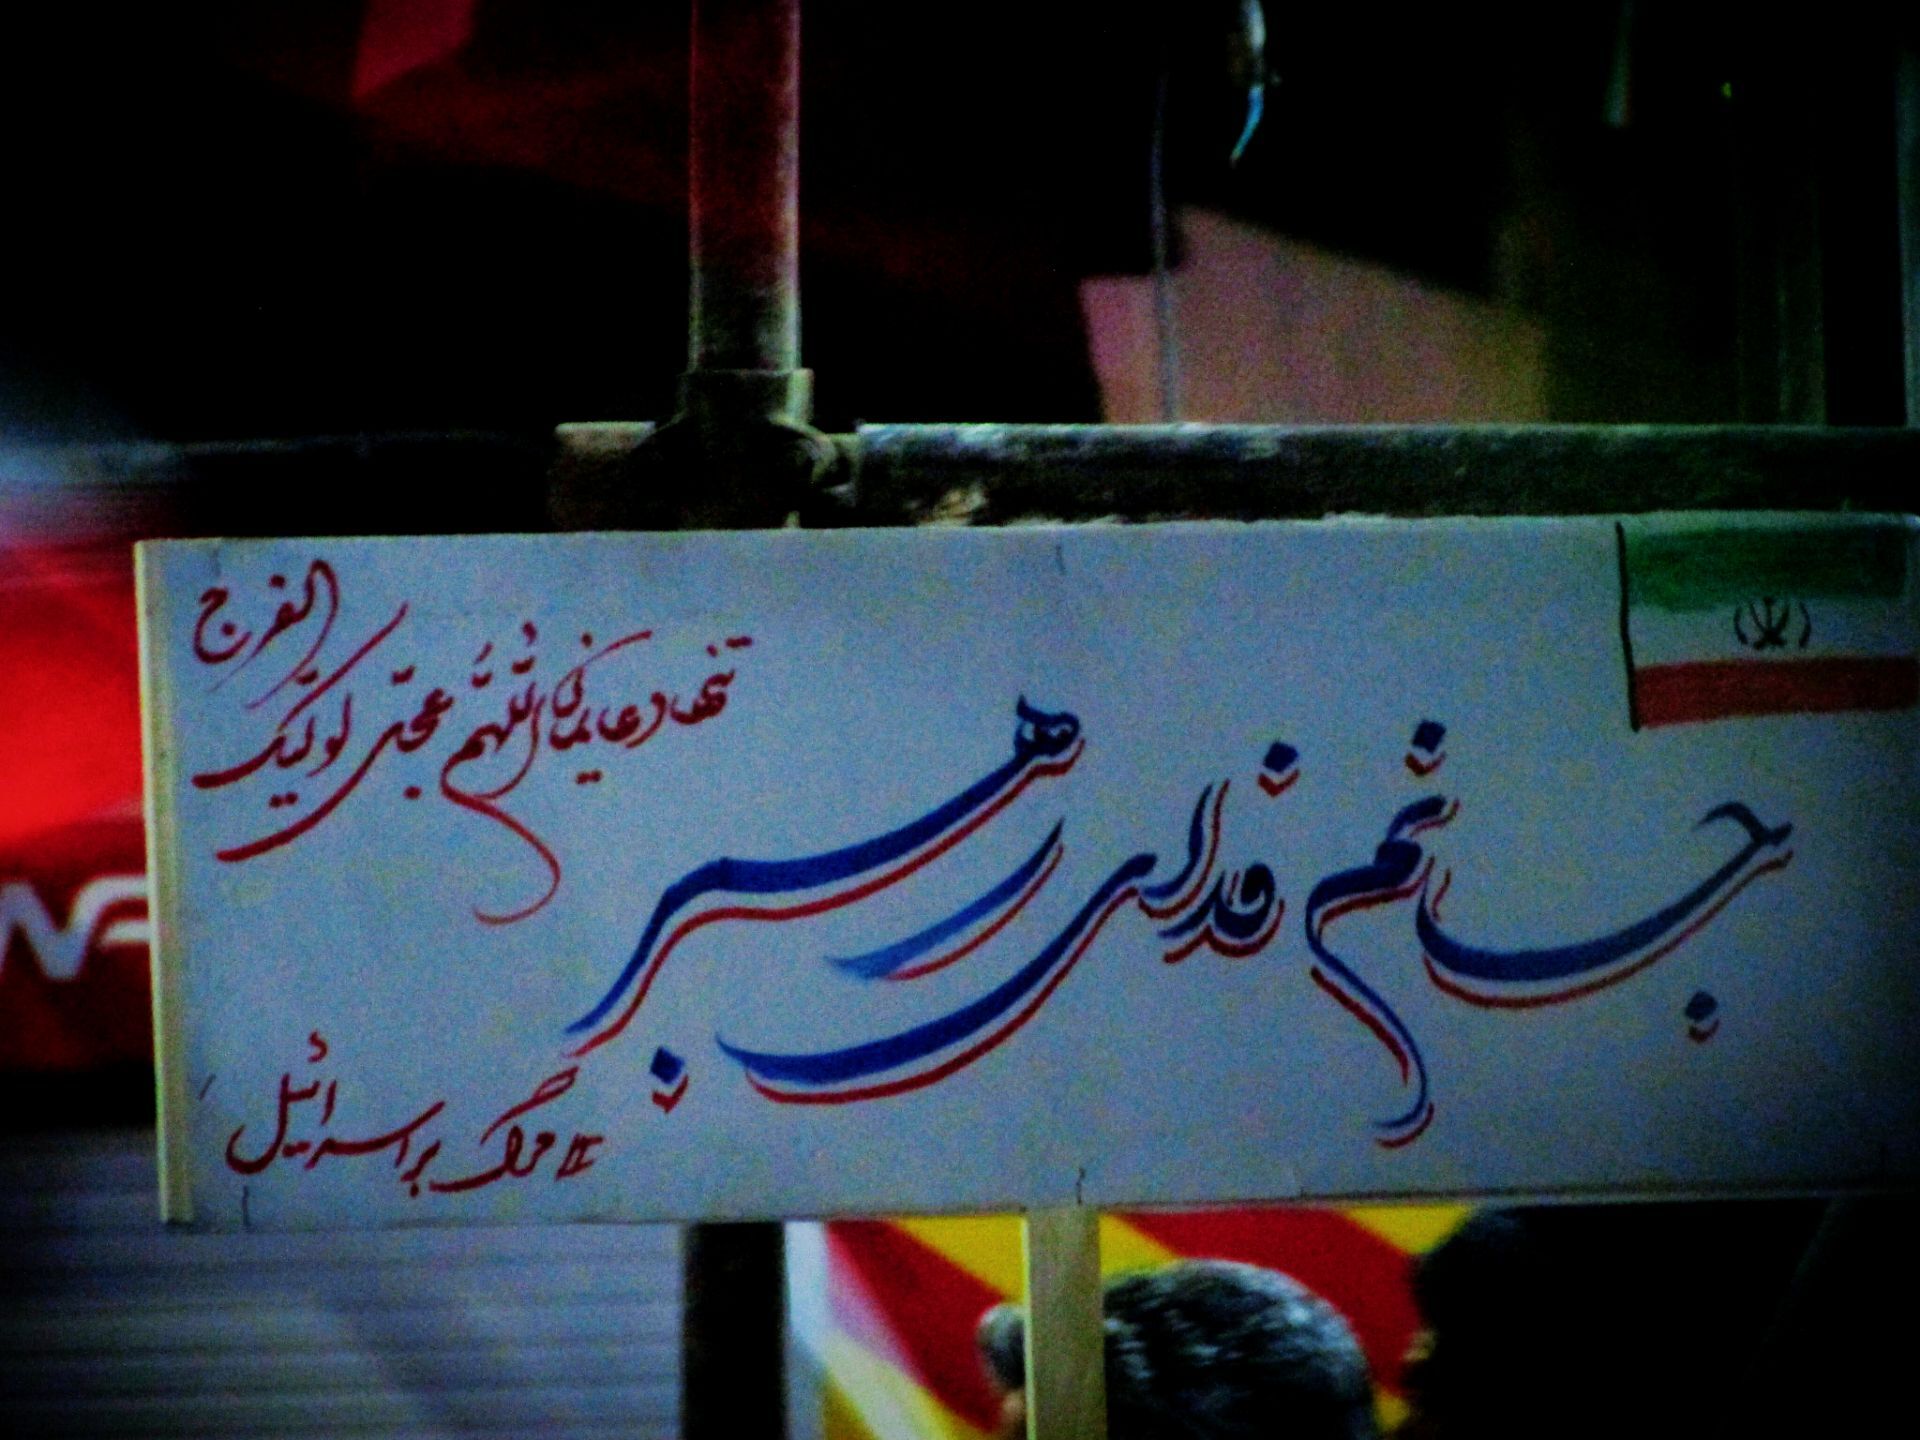 جانم فدای رهبر
تنها دعایمان اللّهُمَّ عجّل لولیک
الفرج
# مرگ بر اسرائیل